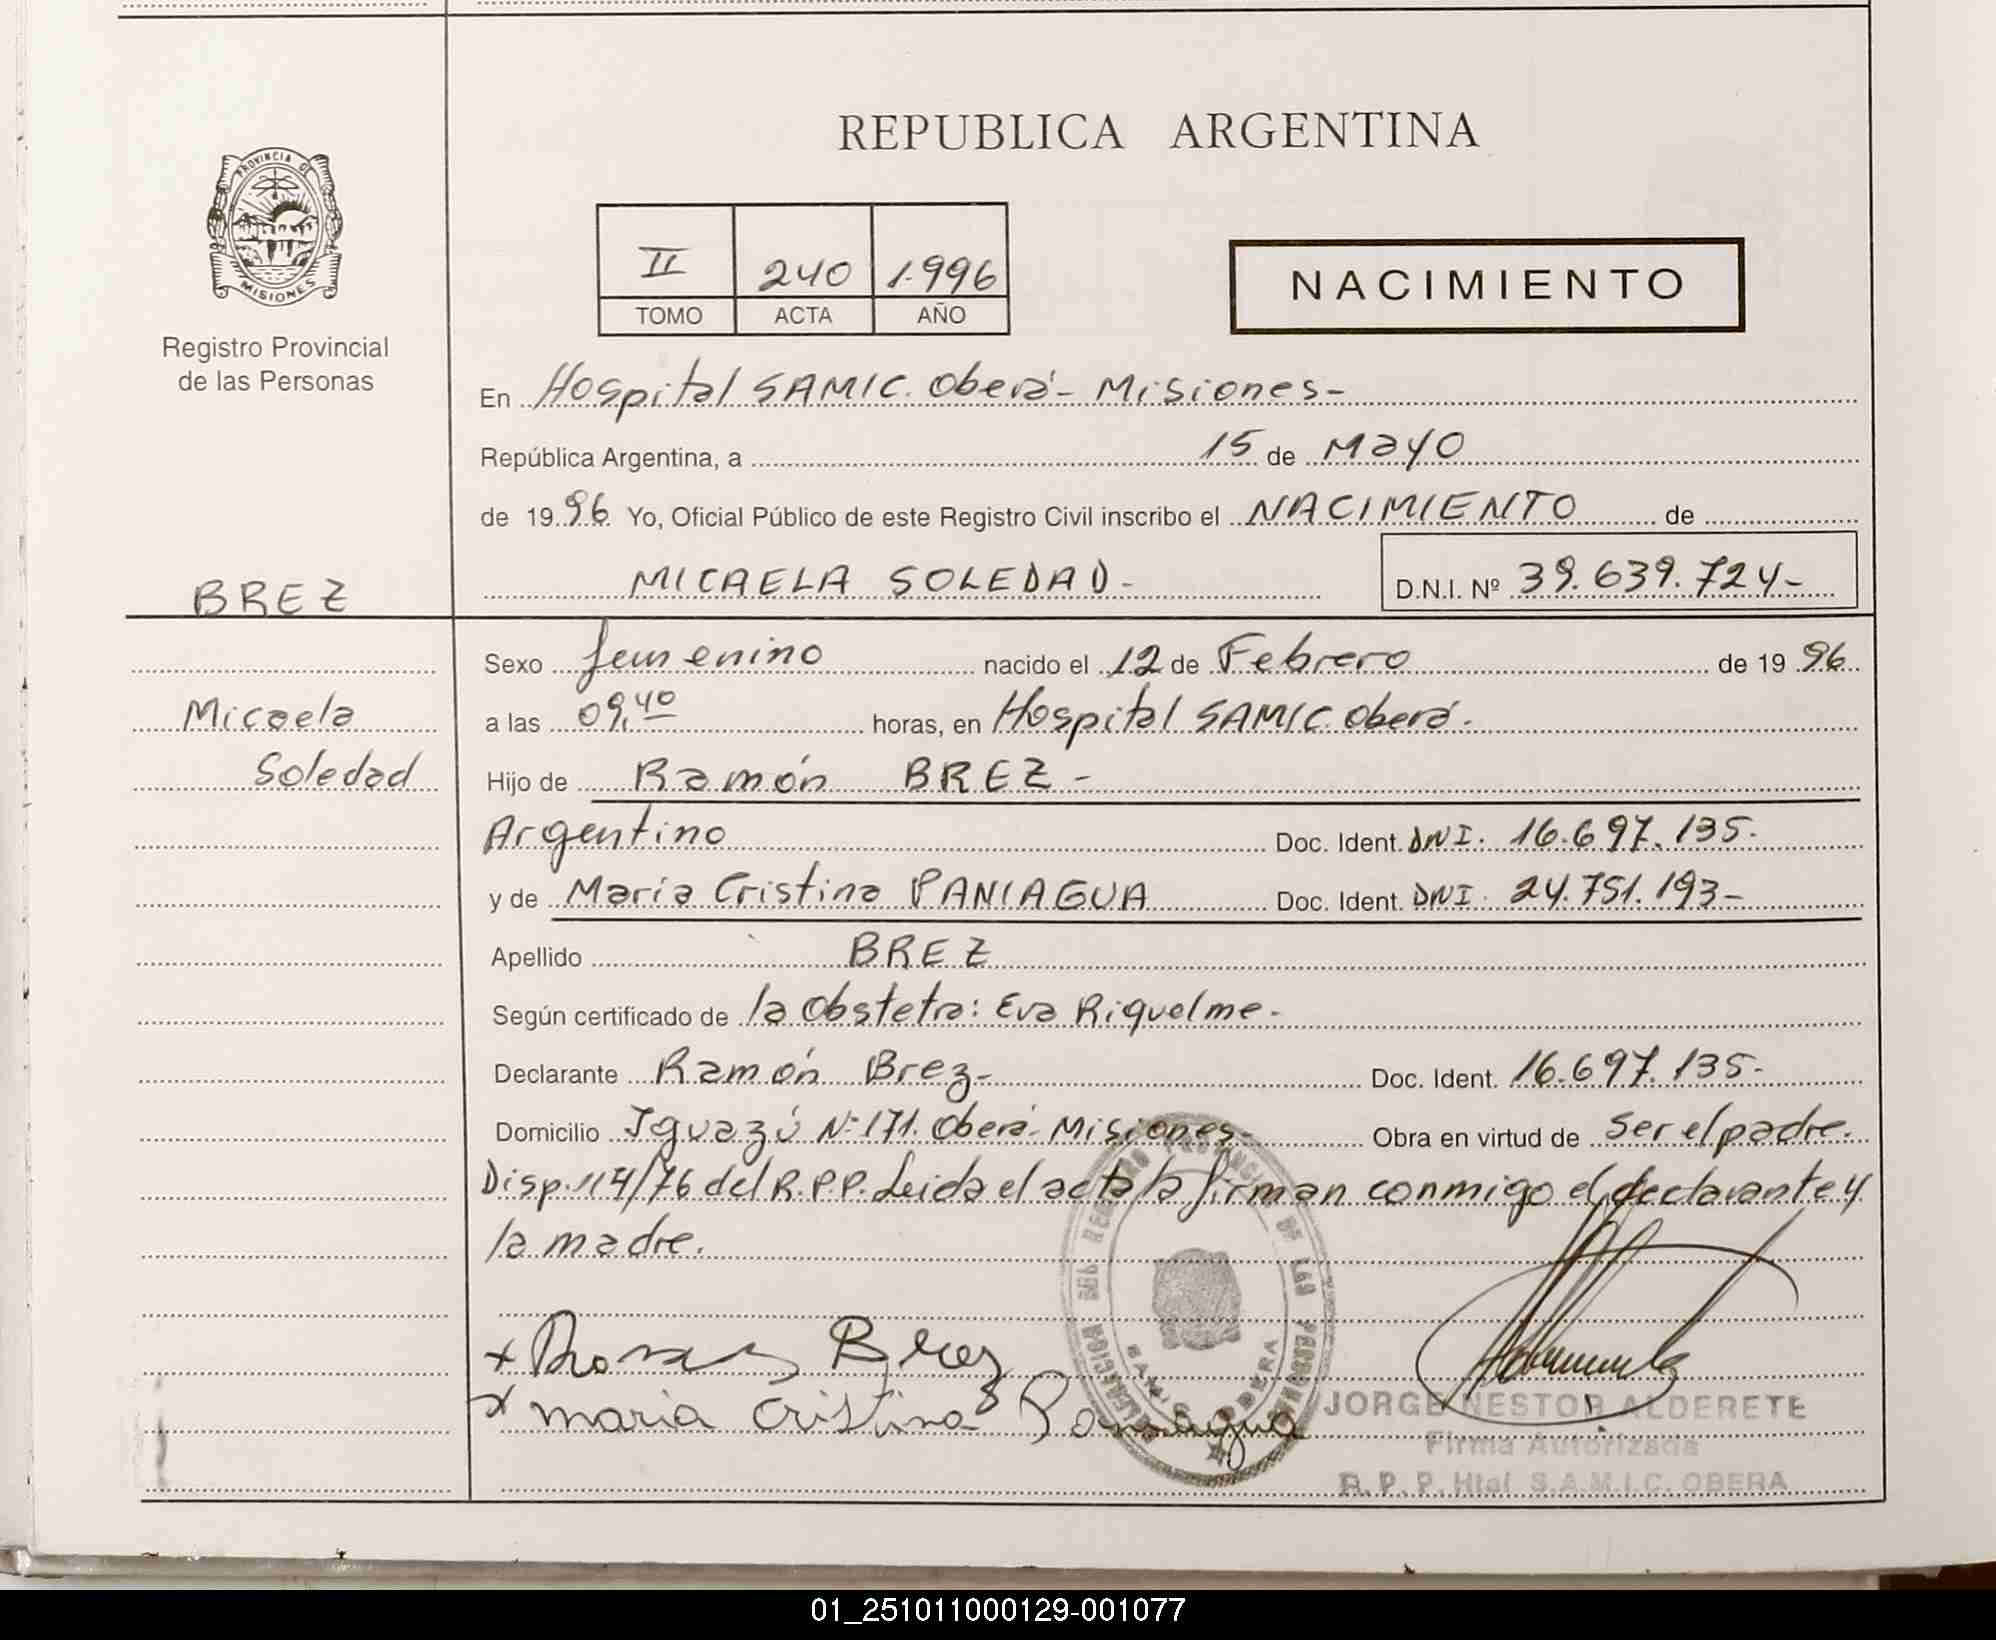 REPUBLICA ARGENTINA
PROVINCIA DE
MISIONES
Registro Provincial
de las Personas
II 240 1.996
TOMO ACTA AÑO
NACIMIENTO
En Hospital SAMIC. Oberá - Misiones -
República Argentina, a 15 de Mayo
de 1996 Yo, Oficial Público de este Registro Civil inscribo el NACIMIENTO de
MICAELA SOLEDAD - D.N.I. Nº 39.639.724-
BREZ
Micaela
Soledad
Sexo femenino nacido el 12 de Febrero de 1996
a las 09,40 horas, en Hospital SAMIC. Oberá.
Hijo de Ramón BREZ -
Argentino Doc. Ident. DNI. 16.697.135.
y de María Cristina PANIAGUA Doc. Ident. DNI. 24.751.193-
Apellido BREZ
Según certificado de la Obstetra: Eva Riquelme.
Declarante Ramón Brez- Doc. Ident. 16.697.135-
Domicilio Iguazú Nº 171. Oberá- Misiones- Obra en virtud de ser el padre.
Disp. 114/76 del R.P.P. Leida el acta la firman conmigo el declarante y
la madre.
x Brez
x maria Cristina Paniagua
DELEGACION DEL REGISTRO PROVINCIAL DE LAS PERSONAS
OBERA
JORGE NESTOR ALDERETE
Firma Autorizada
R.P.P. Htal S.A.M.I.C. OBERA
01_251011000129-001077